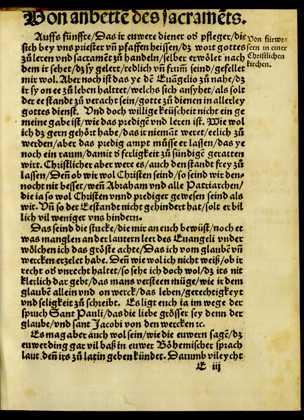 Von anbette des sacramēts.
Auffs fünffte/Das ir euwere diener od pfleger/die
sich bey vns priester vñ pfaffen heissen/dz wort gottes
zů leren vnd sacramēt zů handeln/selber erwölet nach
dem ir sehet/dz sy gelert/redlich vñ frum seind/gefellet
mir wol. Aber noch ist das ye dē Euāgelio zů nahe/dz
ir sy on ee zů leben haltet/welchs sich ansyhet/als solt
der eestandt zů veracht sein/gottes zů dienen in allerley
gottes dienst. Vnd doch willige keüscheit nicht ein ge
meine gabe ist/wie das predigē vnd leren ist. Wie wol
ich dz gern gehört habe/das ir niemāt weret eelich zů
werden/aber das predig ampt müsß er lassen/das ye
noch ein raum/damit d ferligkeit zů sündigē geratten
wirt. Christlicher aber were es/auch den standt frey zů
lassen/Deñ ob wir wol Christen seind/so seind wir den-
nocht nit besser/weñ Abraham vnd alle Patriarchen/
die ia so wol Christen vnnd prediger gewesen seind als
wir. Vñ so der Eestandt nicht gehindert hat/solt er bil
lich vil weniger vns hindern.
Das seind die stucke/die mir an euch bewüst/noch et
was manglen an der lautern leer des Euangeli vnder
wölchen ich das gröste achte/Das ich vom glaubē vñ
wercken erzelet habe. Deñ wie wol ich nicht weiß/ob it
recht oß vnrecht haltet/so sehe ich doch wol/dz its nit
klerlich dar gebt/das mans versteen müge/wie ir dem
glaubē allein vnd on werck/das leben/gerechtigkeyt
vnd seligkeit zů schreibt. Es ligt euch ia im wege der
spruch Sant Pauli/das die liebe grösser sey denn der
glaube/vnd sant Jacobi von den wercken ꝛc.
Es mag aber auch wol sein/wie die euwern sagē/dz
euwer ding gar vil baß in euwer Böhemischer sprach
laut/deñ its zů latin geben kündet. Darumb vileycht
C iij
Von fürwe-
sern in einer
Christlichen
kirchen.